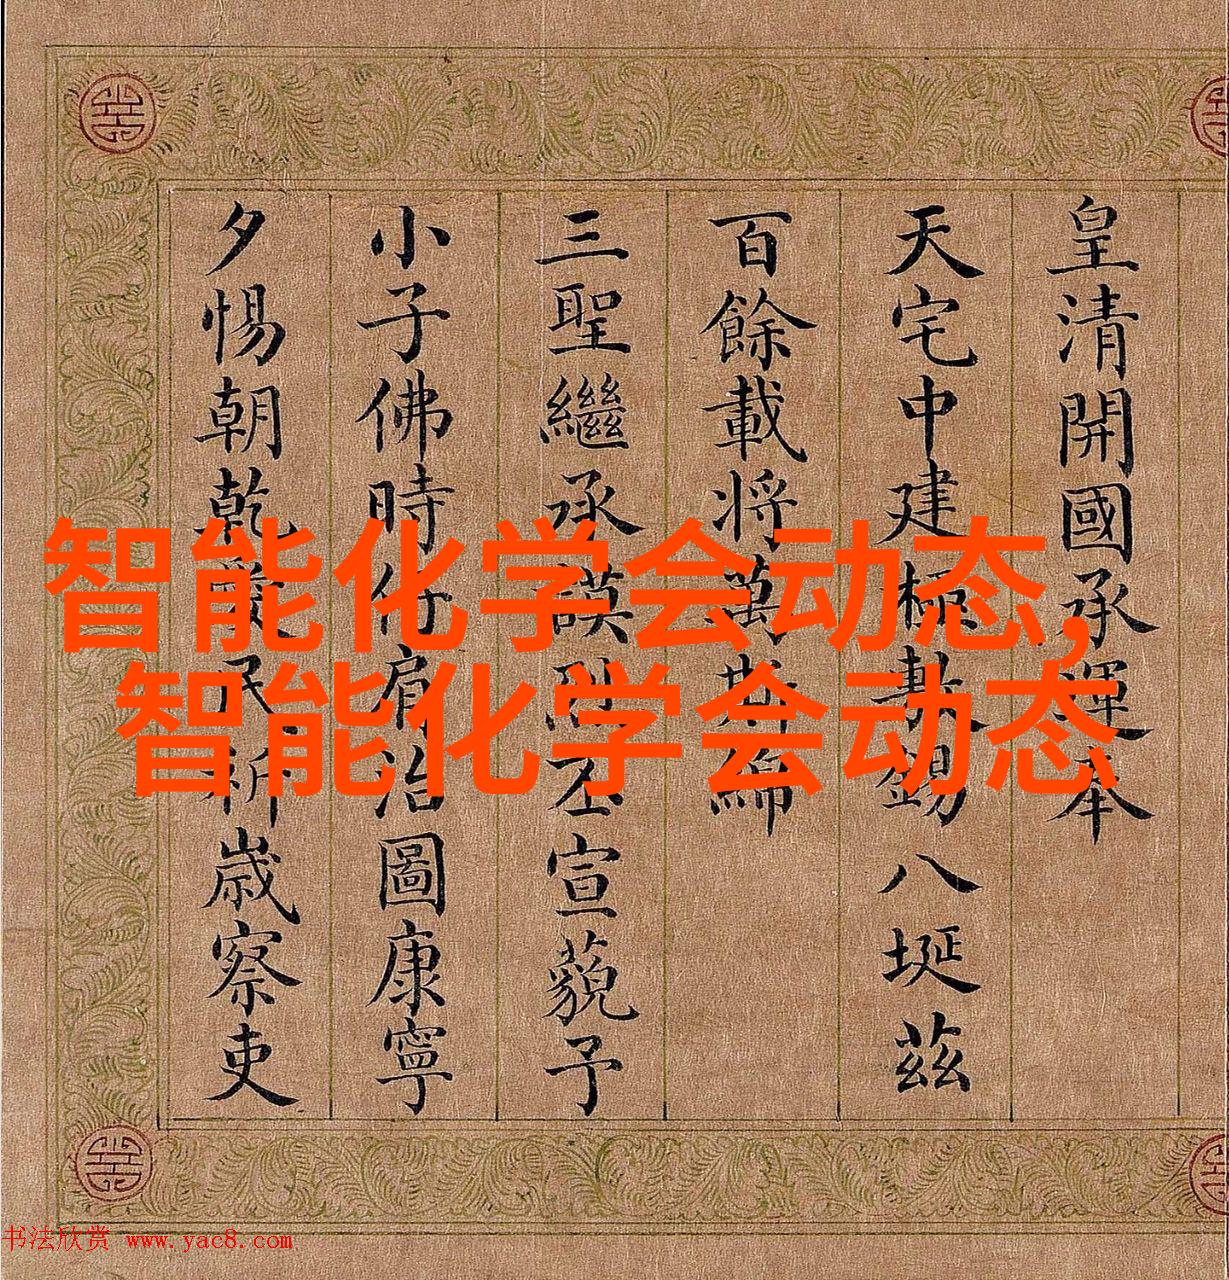 皇清開國承運本
天宅中建極敷錫八埏茲
百餘載將萬斯綿
三聖繼承謨烈丕宣藐予
小子佛時仔肩治圖康寧
夕惕朝乾愛民祈歲察吏
智能化学会动态,
智能化学会动态
书法欣赏 www.yac8.com